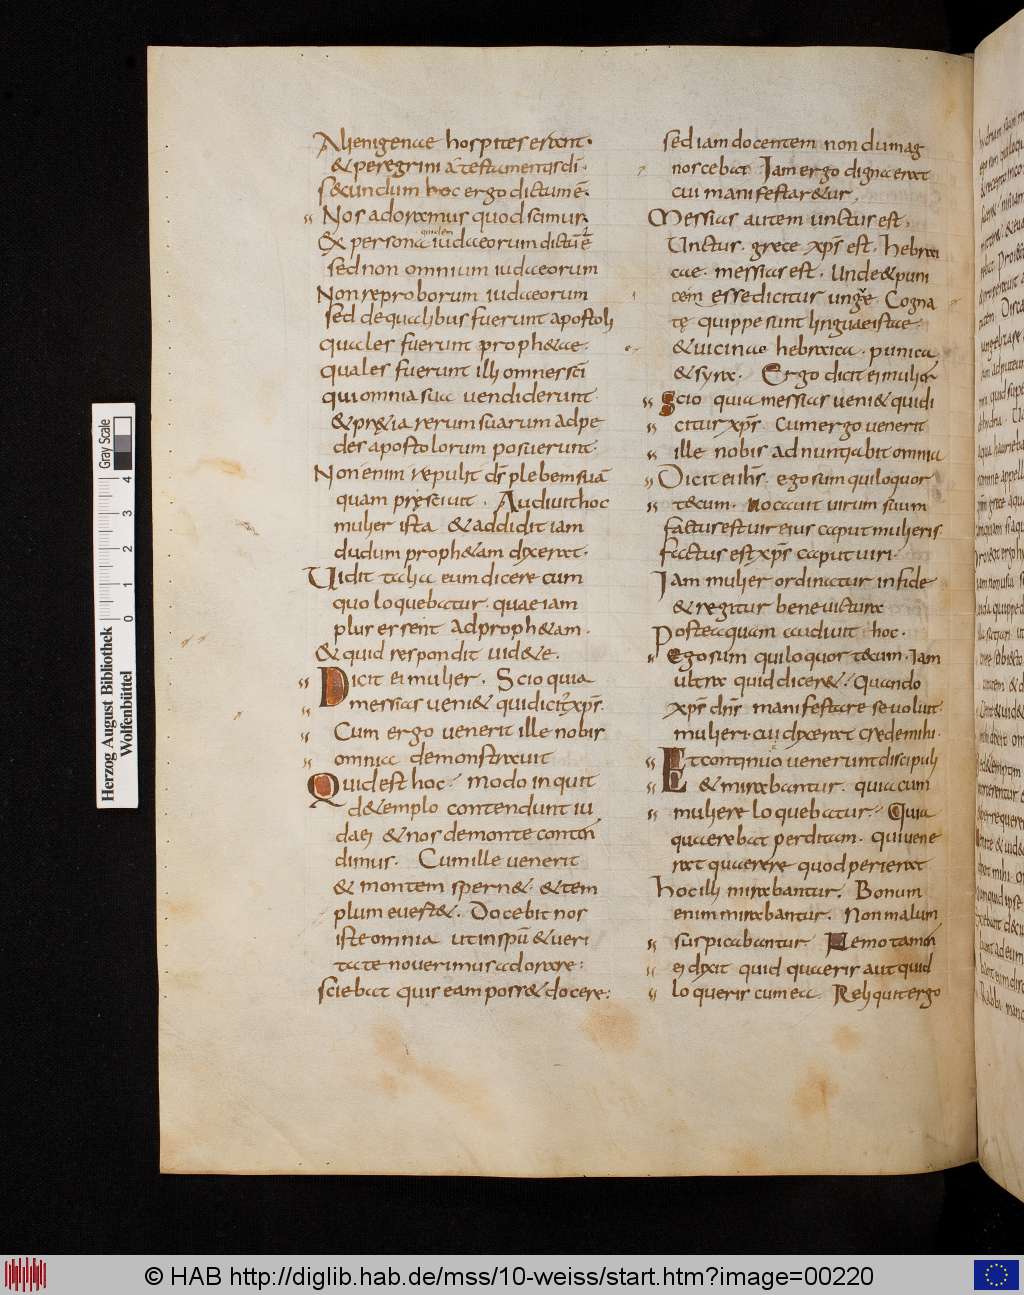 Alienigenae hospites erant·
& peregrini a testamentis dī·
secundum hoc ergo dictum ē·
Nos adoramus quod scimus·
Ex persona quidem iudaeorum dictū ē
sed non omnium iudaeorum
Non reproborum iudaeorum
sed de qualibus fuerunt apostoli
quales fuerunt proph&ae·
quales fuerunt illi omnes sc̄i
qui omnia sua uendiderunt·
& pr&ia rerum suarum ad pe
des apostolorum posuerunt·
Non enim repulit d̄s plebem suā
quam pręsciuit · Audiuit hoc
mulier ista & addidit iam
dudum proph&am dixerat·
Uidit talia eum dicere cum
quo loquebatur· quae iam
plus essent ad proph&am·
& quid respondit uid&e·
Dicit ei mulier· Scio quia
messias ueni& qui dicit̄ xp̄s·
Cum ergo uenerit ille nobis
omnia demonstrauit
Quid est hoc· modo inquit
de templo contendunt iu
daei & nos de monte conten
dimus· Cum ille uenerit
& montem spern&· & tem
plum euert&· Docebit nos
iste omnia ut in sp̄u & ueri
tate nouerimus adorare·
sciebat quis eam poss& docere·
sed iam docentem nondum ag
noscebat Iam ergo digna erat
cui manifestar&ur·
Messias autem unctus est·
Unctus· grece xp̄s est· Hebrai
cae· messias est· Unde & puni
cem esse dicitur unge· Cogna
tę quippe sunt linguae istae·
& uicinae hebraica· punica
& syra· Ergo dicit ei mulier
Scio quia messias ueni& qui di
citur xp̄s· Cum ergo uenerit
ille nobis adnuntiabit omnia
Dicit ei ih̄s· ego sum qui loquor
tecum· uocauit uirum suum
factus est uir eius caput mulieris·
factus est xp̄s caput uiri·
Iam mulier ordinatur in fide
& regitur bene uictura
Postea quam audiuit hoc·
Ego sum qui loquor tecum· Iam
ultra quid dicer&· Quando
xp̄s dn̄s manifestare se uoluit
mulieri· cui dixerat crede mihi·
Et continuo uenerunt discipuli
& mirabantur· quia cum
muliere loquebatur· Quia
quaerebat perditam· qui uene
rat quaerere quod perierat
Hoc illi mirabantur· Bonum
enim mirabantur· Non malum
suspicabantur Nemo tamen
ei dixit quid quaeris aut quid
loqueris cum ea· Reliquit ergo
Herzog August Bibliothek
Wolfenbüttel
Gray Scale
0 1 2 3 4
© HAB http://diglib.hab.de/mss/10-weiss/start.htm?image=00220